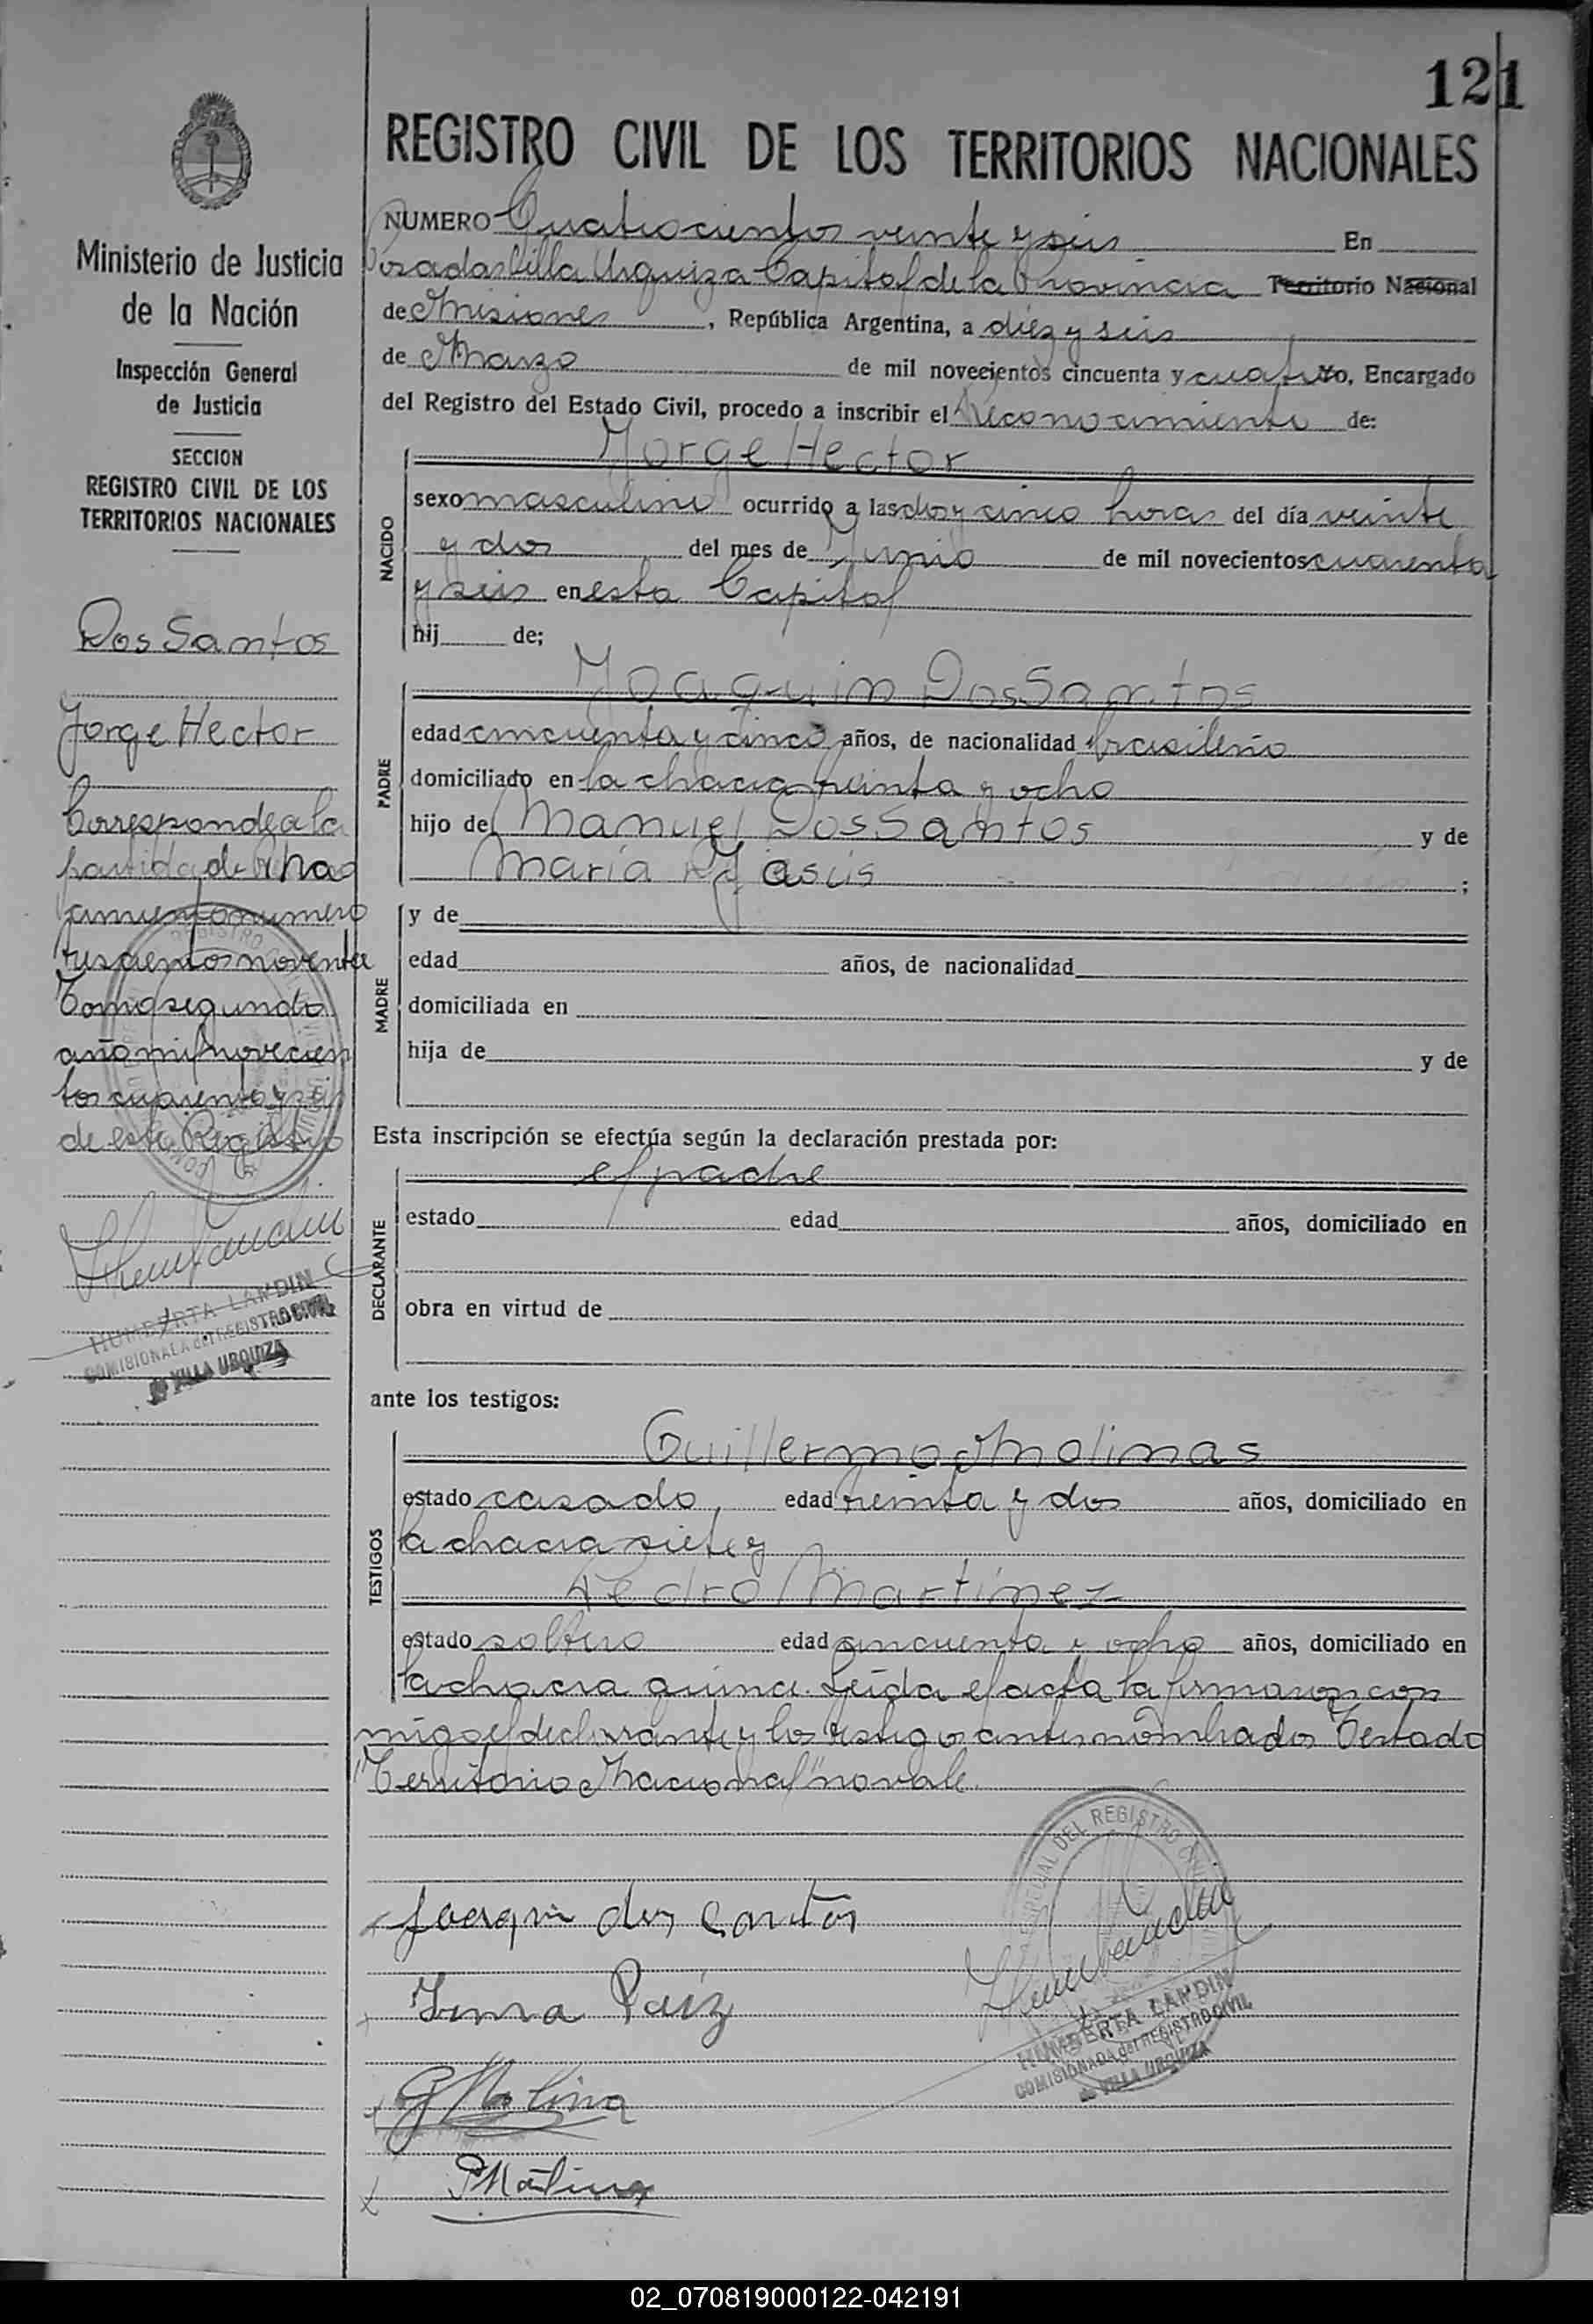 121
REGISTRO CIVIL DE LOS TERRITORIOS NACIONALES
Ministerio de Justicia
de la Nación
Inspección General
de Justicia
SECCION
REGISTRO CIVIL DE LOS
TERRITORIOS NACIONALES
Dos Santos
Jorge Hector
Corresponde a la
partida de naci
miento numero
trescientos noventa
Tomo segundo
año mil novecien
tos cuarenta y seis
de este Registro
HUMBERTA LANDIN
COMISIONADA del REGISTRO CIVIL
de VILLA URQUIZA
NUMERO Quatrocientos veinte y seis En
Posadas Villa Urquiza Capital de la Provincia Territorio Nacional
de Misiones, República Argentina, a diez y seis
de Marzo de mil novecientos cincuenta y cuatro Yo, Encargado
del Registro del Estado Civil, procedo a inscribir el Reconocimiento de:
NACIDO
Jorge Hector
sexo masculino ocurrido a las dos y cinco horas del día veinte
y dos del mes de Junio de mil novecientos cuarenta
y seis en esta Capital
hij de;
PADRE
Joaquin Dos Santos
edad cincuenta y cinco años, de nacionalidad brasileño
domiciliado en la chacra treinta y ocho
hijo de Manuel Dos Santos y de
Maria Jasús ;
MADRE
y de
edad años, de nacionalidad
domiciliada en
hija de y de
Esta inscripción se efectúa según la declaración prestada por:
DECLARANTE
el padre
estado edad años, domiciliado en
obra en virtud de
ante los testigos:
TESTIGOS
Guillermo Molinas
estado casado, edad treinta y dos años, domiciliado en
la chacra siete y
Pedro Martinez
estado soltero edad cincuenta y ocho años, domiciliado en
la chacra quince. Leída el acta la firmaron con
migo el declarante y los testigos antes nombrados Testado
"Territorio Nacional" no vale.
DEL REGISTRO CIVIL
Joaquin dos Santos
Irma Paiz
G Molina
PMartinez
HUMBERTA LANDIN
COMISIONADA del REGISTRO CIVIL
de VILLA URQUIZA
02_070819000122-042191